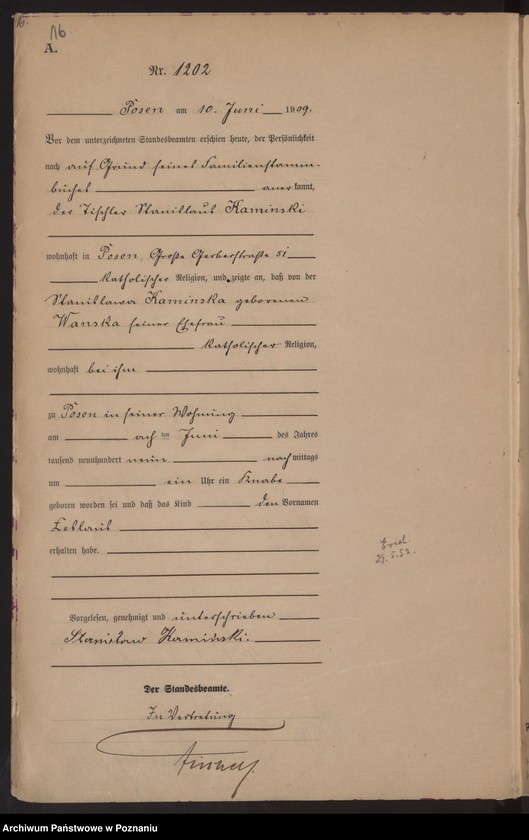 16
A.
Nr. 1202
Posen am 10. Juni 1909.
Vor dem unterzeichneten Standesbeamten erschien heute, der Persönlichkeit
nach auf Grund seines Familienstamm-
buches anerkannt,
der Tischler Stanislaus Kaminski
wohnhaft in Posen, Große Gerberstraße 51
katholischer Religion, und zeigte an, daß von der
Stanislawa Kaminska geborenen
Wanska seiner Ehefrau
katholischer Religion,
wohnhaft bei ihm
zu Posen in seiner Wohnung
am acht ten Juni des Jahres
tausend neunhundert neun nachmittags
um ein Uhr ein Knabe
geboren worden sei und daß das Kind den Vornamen
Zeslaus
erhalten habe.
29.5.52.
Vorgelesen, genehmigt und unterschrieben
Stanisław Kamiński.
Der Standesbeamte.
In Vertretung
Archiwum Państwowe w Poznaniu